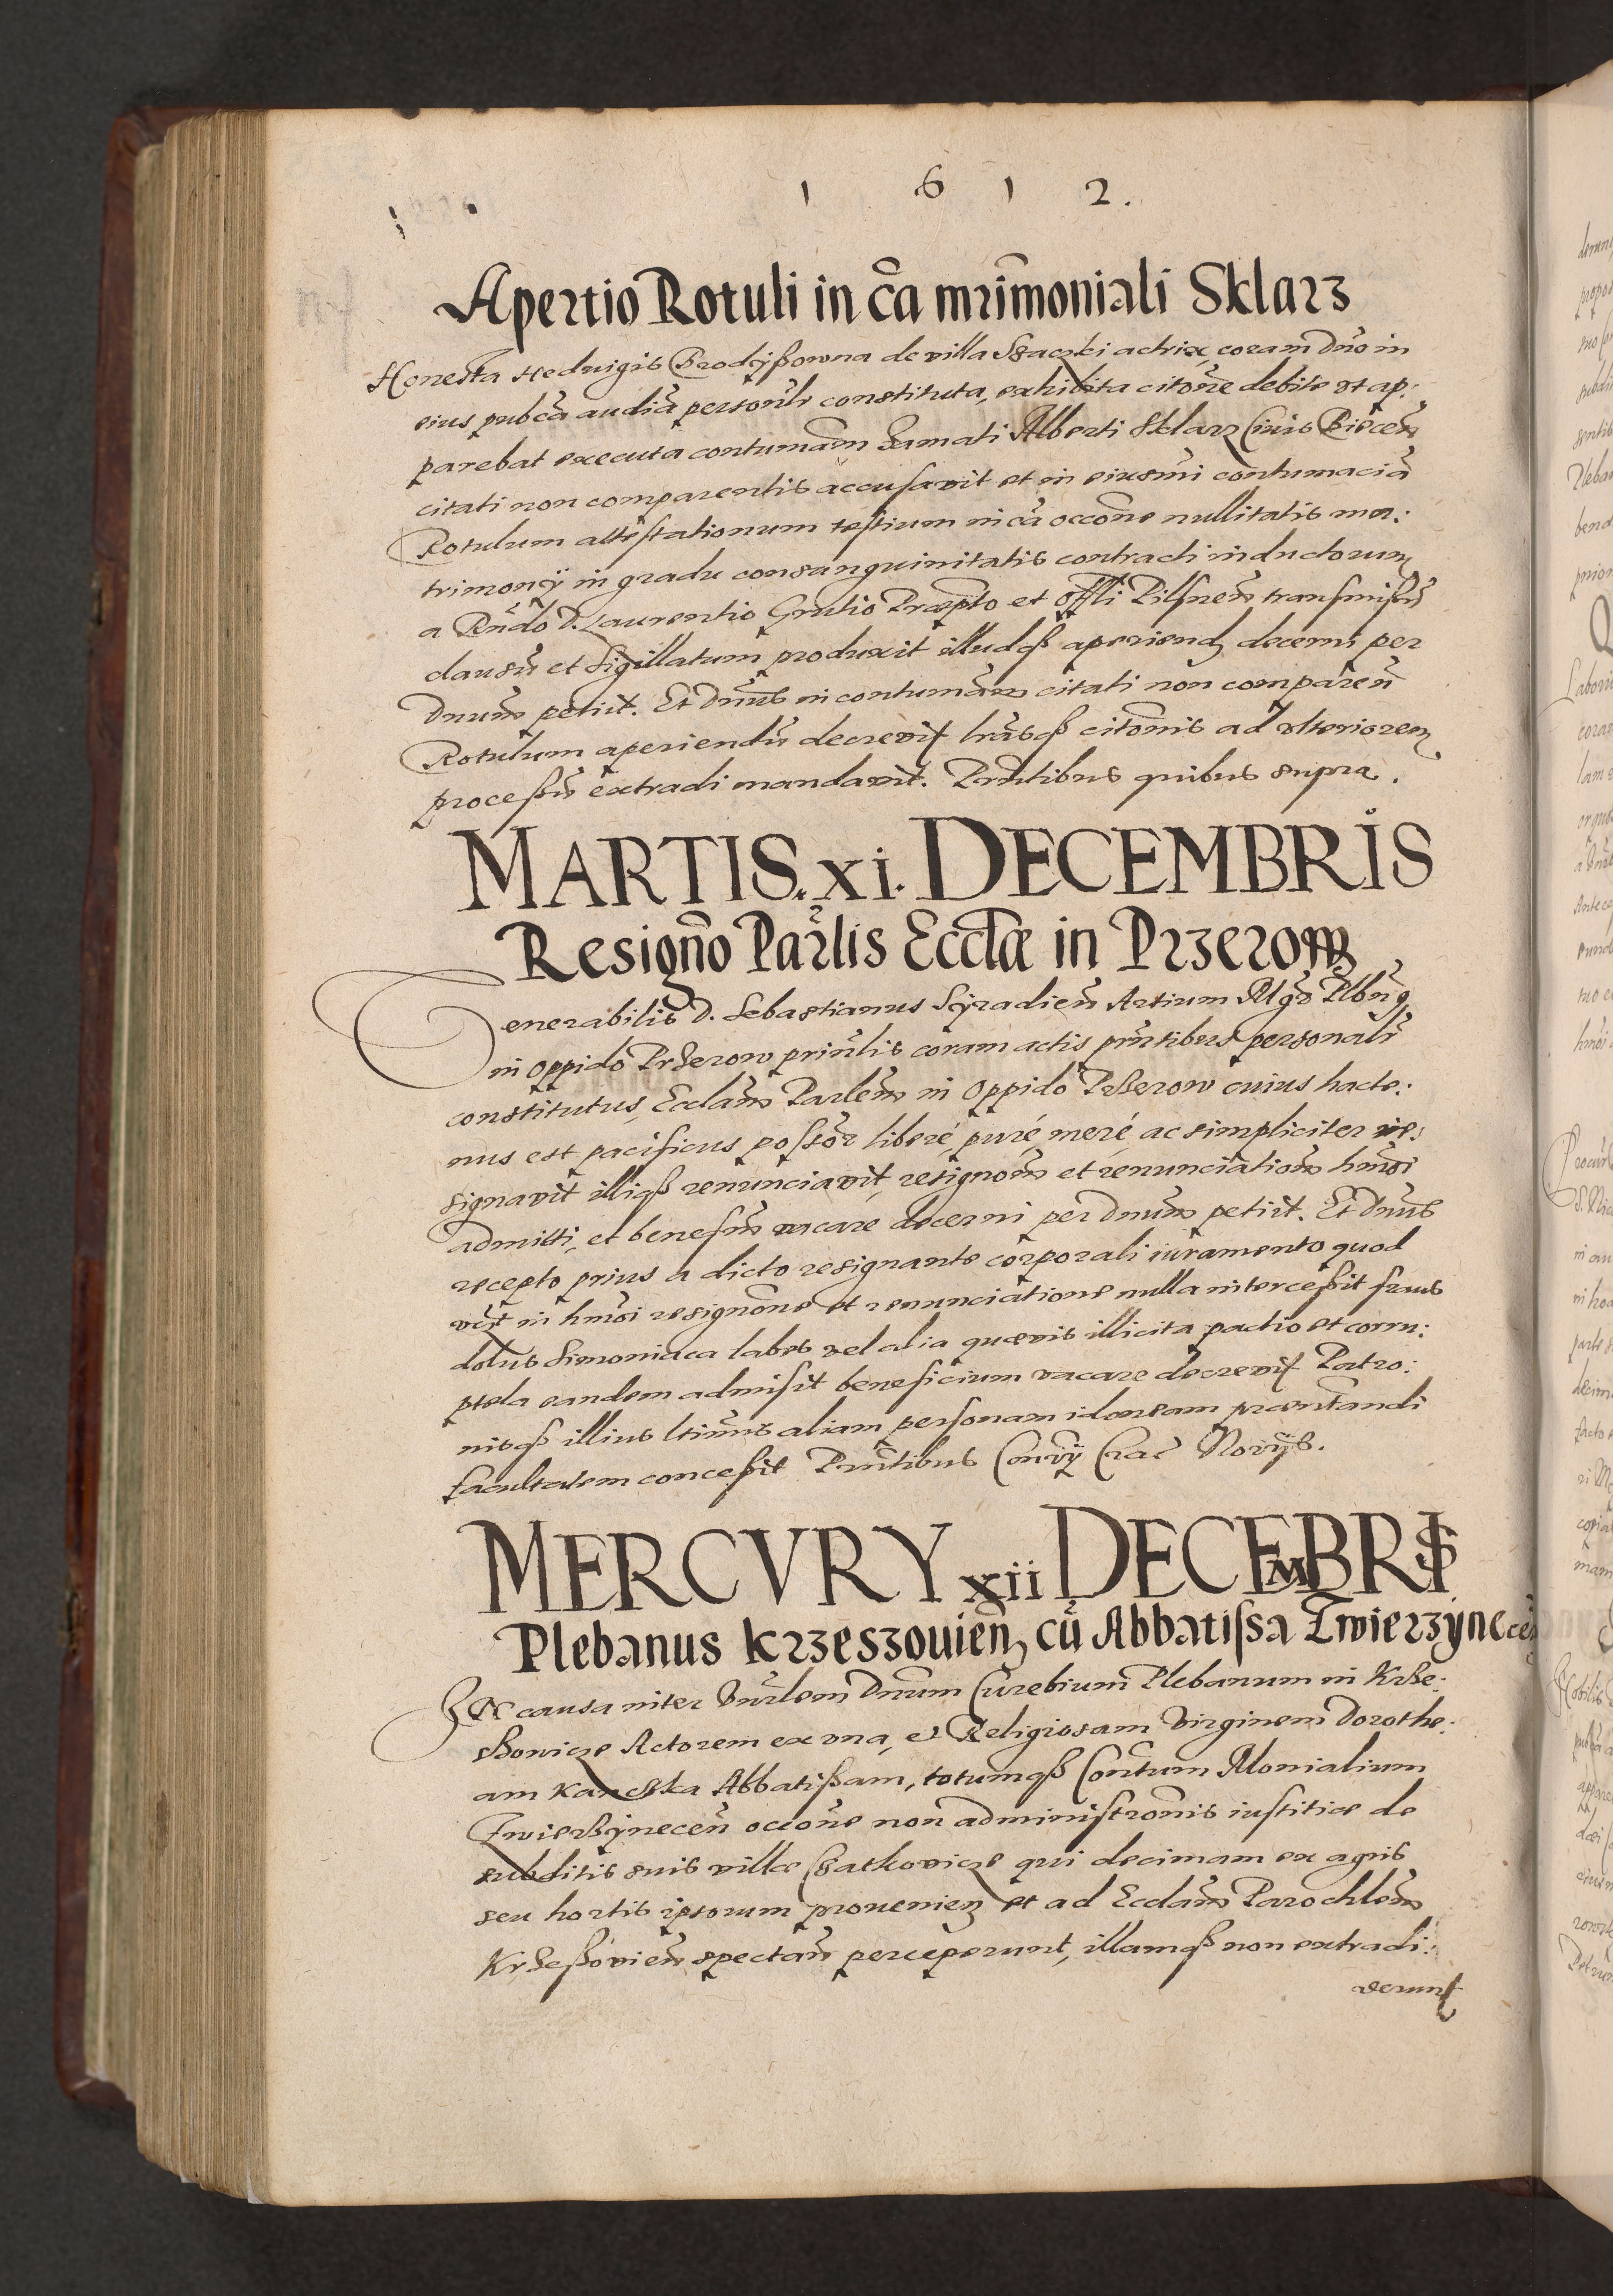 1 6 1 2.
Apertio Rotuli in cã mrĩmoniali Sklarz
Honesta Hedvigis Brodÿßowna de villa Szaczki actrix, coram Dño in
eius pubcã audiã personlr constituta, exhibita citõne debite ut ap:
parebat executa contumam famati Alberti Sklarz Civis
citati non comparentis accusavit et in eiusmi contumaciã
Rotulum attestationum testium in cã occõne nullitatis ma:
trimonÿ in gradu consanguinitatis contracti inductorum
a Rñdo D. Laurentio Præpto et Offli Pilsneñ transmissũ
clausũ et sigillatum produxit illudqß aperiend decerni per
Dnum petiit. Et Dñus in contumam citati non compareñ
Rotulum aperiendũ decrevit lrãsqß citõnis ad ulteriorem
processũ extradi mandavit. Pñtibus quibus supra.
MARTIS. xi. DECEMBRIS
Resignõ Parlis Ecclæ in Przerow
Venerabilis D. Sebastianus Syradieñ Artium Mgr Plbnus
in Oppido Przerow prinlis coram actis pñtibus personalr
constitutus, Ecclam Parlem in Oppido Przerow cuius hacte:
nus est pacificus possor liberé, puré, meré, ac simpliciter re:
signavit illiqß renunciavit, resignõm et renunciationem hmõi
admitti, et benefm vacare decerni per Dnum petiit. Et Dñus
recepto prius a dicto resignante corporali iuramento quod
in hmõi resignõne et renunciatione nulla intercessit fraus
dolus Simoniaca labes vel alia quævis illicita pactio et corru:
ptela eandem admisit beneficium vacare decrevit Patro:
nisqß illius ltimis aliam personam idoneam præntandi
facultatem concessit Pñtibus Crac Norÿs.
MERCVRY xii DECEMBRIS
Plebanus Krzeszovieñ cũ Abbatissa Zwierzynecen
In causa inter Vnrlem Dnum Plebanum in Krze:
szowice Actorem ex una, et Religiosam Virginem Dorothe:
am Kanczka Abbatissam, totumqß Conntum Monialium
Zwierzÿneceñ occõne non administrõnis iustitiæ de
subditis suis villæ qui decimam ex agris
seu hortis ipsorum provenien et ad Ecclam Parochlem
Krzeßovieñ spectañ perceperunt, illamqß non extradi:
derunt